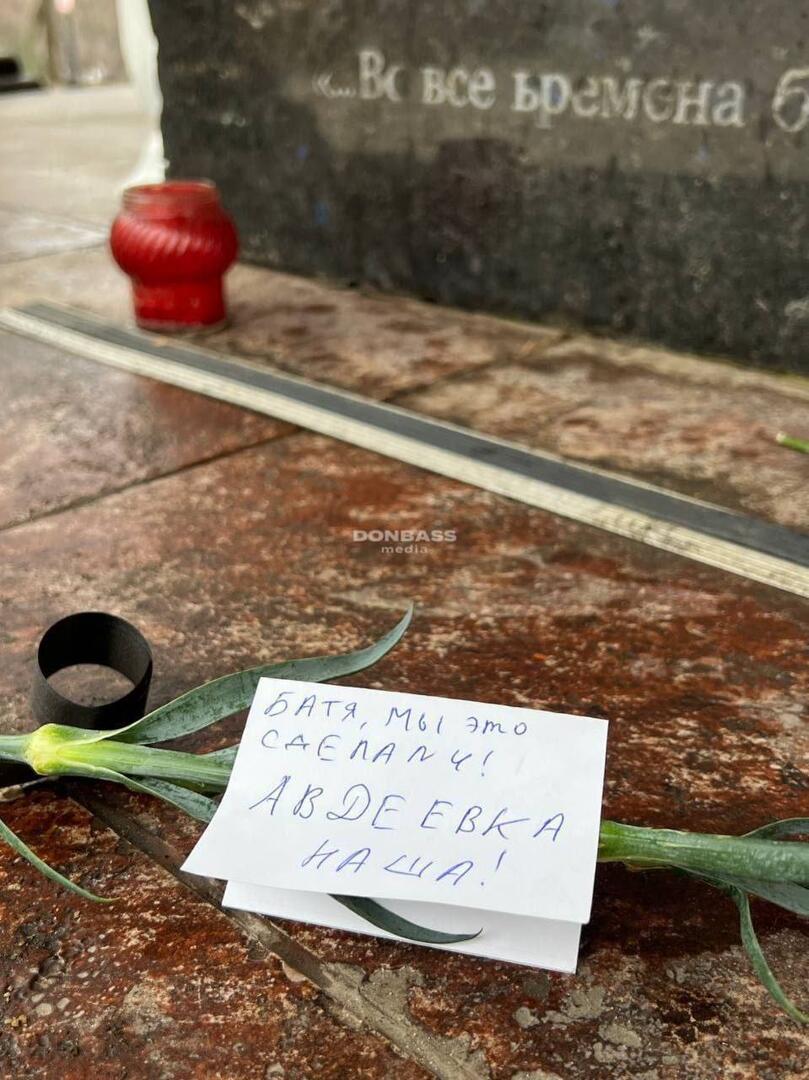 «...Во все времена
DONBASS
media
БАТЯ, МЫ ЭТО
СДЕЛАЛИ!
АВДЕЕВКА
НАША!